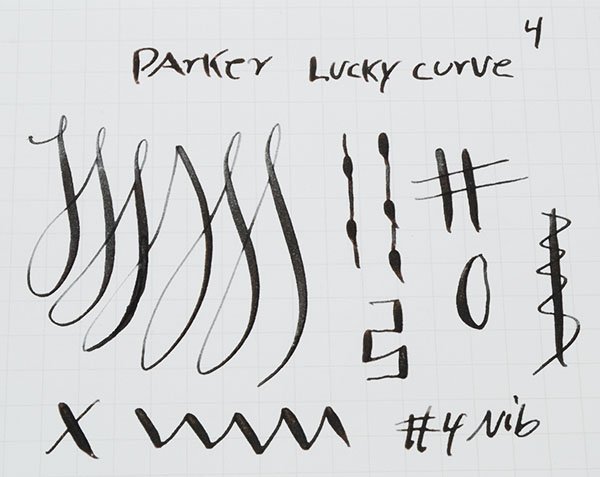 4
Parker Lucky Curve
#4 Nib